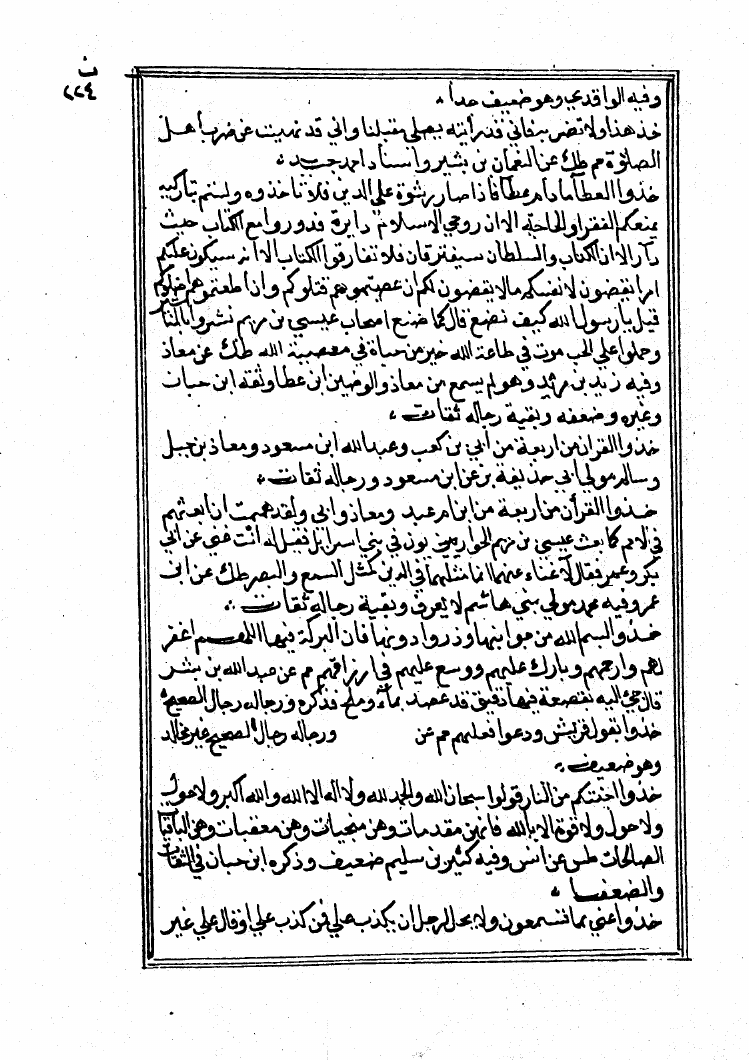 ن
٢٢٤
وفيه الواقدي وهو ضعيف جدا
خذ هذا ولا تضربه فاني قد رأيته يصلي مقبلنا واني قد نهيت عن ضرب أهل
الصلوة حم طك عن النعمان بن بشير واسناد احمد جيد
خذوا العطا ما دام عطا فاذا صار رشوة علي الدين فلا تاخذوه ولستم بتاركيه
يمنعكم الفقر والحاجة الا ان رحي الاسلام دايرة فدوروا مع الكتاب حيث
دار الا ان الكتاب والسلطان سيفترقان فلا تفارقوا الكتاب الا انه سيكون عليكم
امرا يقضون لانفسكم ما لا يقضون لكم ان عصيتموهم قتلوكم وان اطعتموهم اضلوكم
قيل يا رسول الله كيف نصنع قال كما صنع اصحاب عيسي بن مريم نشروا بالمناشير
وحملوا علي الخشب موت في طاعة الله خير من حياة في معصية الله طك عن معاذ
وفيه زيد بن مرثد وهو لم يسمع من معاذ والوضين ابن عطا وثقه ابن حبان
وغيره وضعفه وبقية رجاله ثقات
خذوا القران من اربعة من أبي بن كعب وعبد الله ابن مسعود ومعاذ بن جبل
وسالم مولي ابي حذيفة بز عن ابن مسعود ورجاله ثقات
خذوا القرأن من اربعة من ابن ام عبد ومعاذ وابي ولقد هممت ان ابعثهم
في الامم كما بعث عيسي بن مريم الحواريين في بني اسرايل فقيل له انت غني عن ابي
بكر وعمر فقال لا غناء عنهما انما مثلهما في الدين كمثل السمع والبصر طك عن ابن
عمر وفيه محمد مولي بني هاشم لا يعرف وبقية رجاله ثقات
خذوا بسم الله من جوانبها وذروا ذروتها فان البركة فيها اللهم اغفر
لهم وارحمهم وبارك عليهم ووسع عليهم في ارزاقهم حم عن عبد الله بن بشر
قال جئ اليه بقصعة فيها دقيق قد عصد بماء وملح فذكره ورجاله رجال الصحيح
خذوا بقول قريش ودعوا فعلهم حم عن ورجاله رجال الصحيح غير مجالد
وهو ضعيف
خذوا جنتكم من النار قولوا سبحان الله والحمد لله ولا اله الا الله والله اكبر ولا حول
ولا حول ولا قوة الا بالله فانهن مقدمات وهن منجيات وهن معقبات وهن الباقيات
الصالحات طس عن انس وفيه كثير بن سليم ضعيف وذكره ابن حبان في الثقات
والضعفا
خذوا عني بما تسمعون ولا يحل لرجل ان يكذب علي فمن كذب علي او قال علي غير